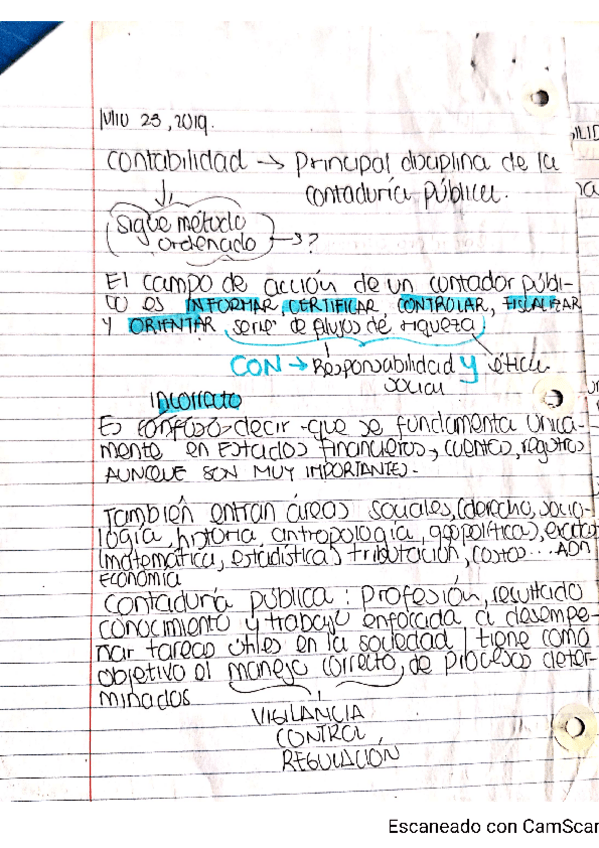 Julio 23, 2019.
Contabilidad → Principal disciplina de la
contaduría pública.
Sigue método
ordenado → ?
El campo de acción de un contador públi-
co es INFORMAR, CERTIFICAR, CONTROLAR, FISCALIZAR
Y ORIENTAR serie de flujos de riqueza
CON → Responsabilidad Y ética
social
Incorrecto
Es confuso decir que se fundamenta única-
mente en Estados financieros, cuentas, registros
AUNQUE SON MUY IMPORTANTES.
También entran áreas sociales, (derecho, socio-
logía, historia, antropología, geopolítica), exactas
(matemática, estadística) tributación, costos... ADM
ECONOMIA
Contaduría pública: Profesión, resultado
conocimiento y trabajo enforcada a desempe-
ñar tareas útiles en la sociedad | tiene como
objetivo el manejo correcto, de procesos deter-
minados
VIGILANCIA
CONTROL,
REGULACIÓN
Escaneado con CamScan